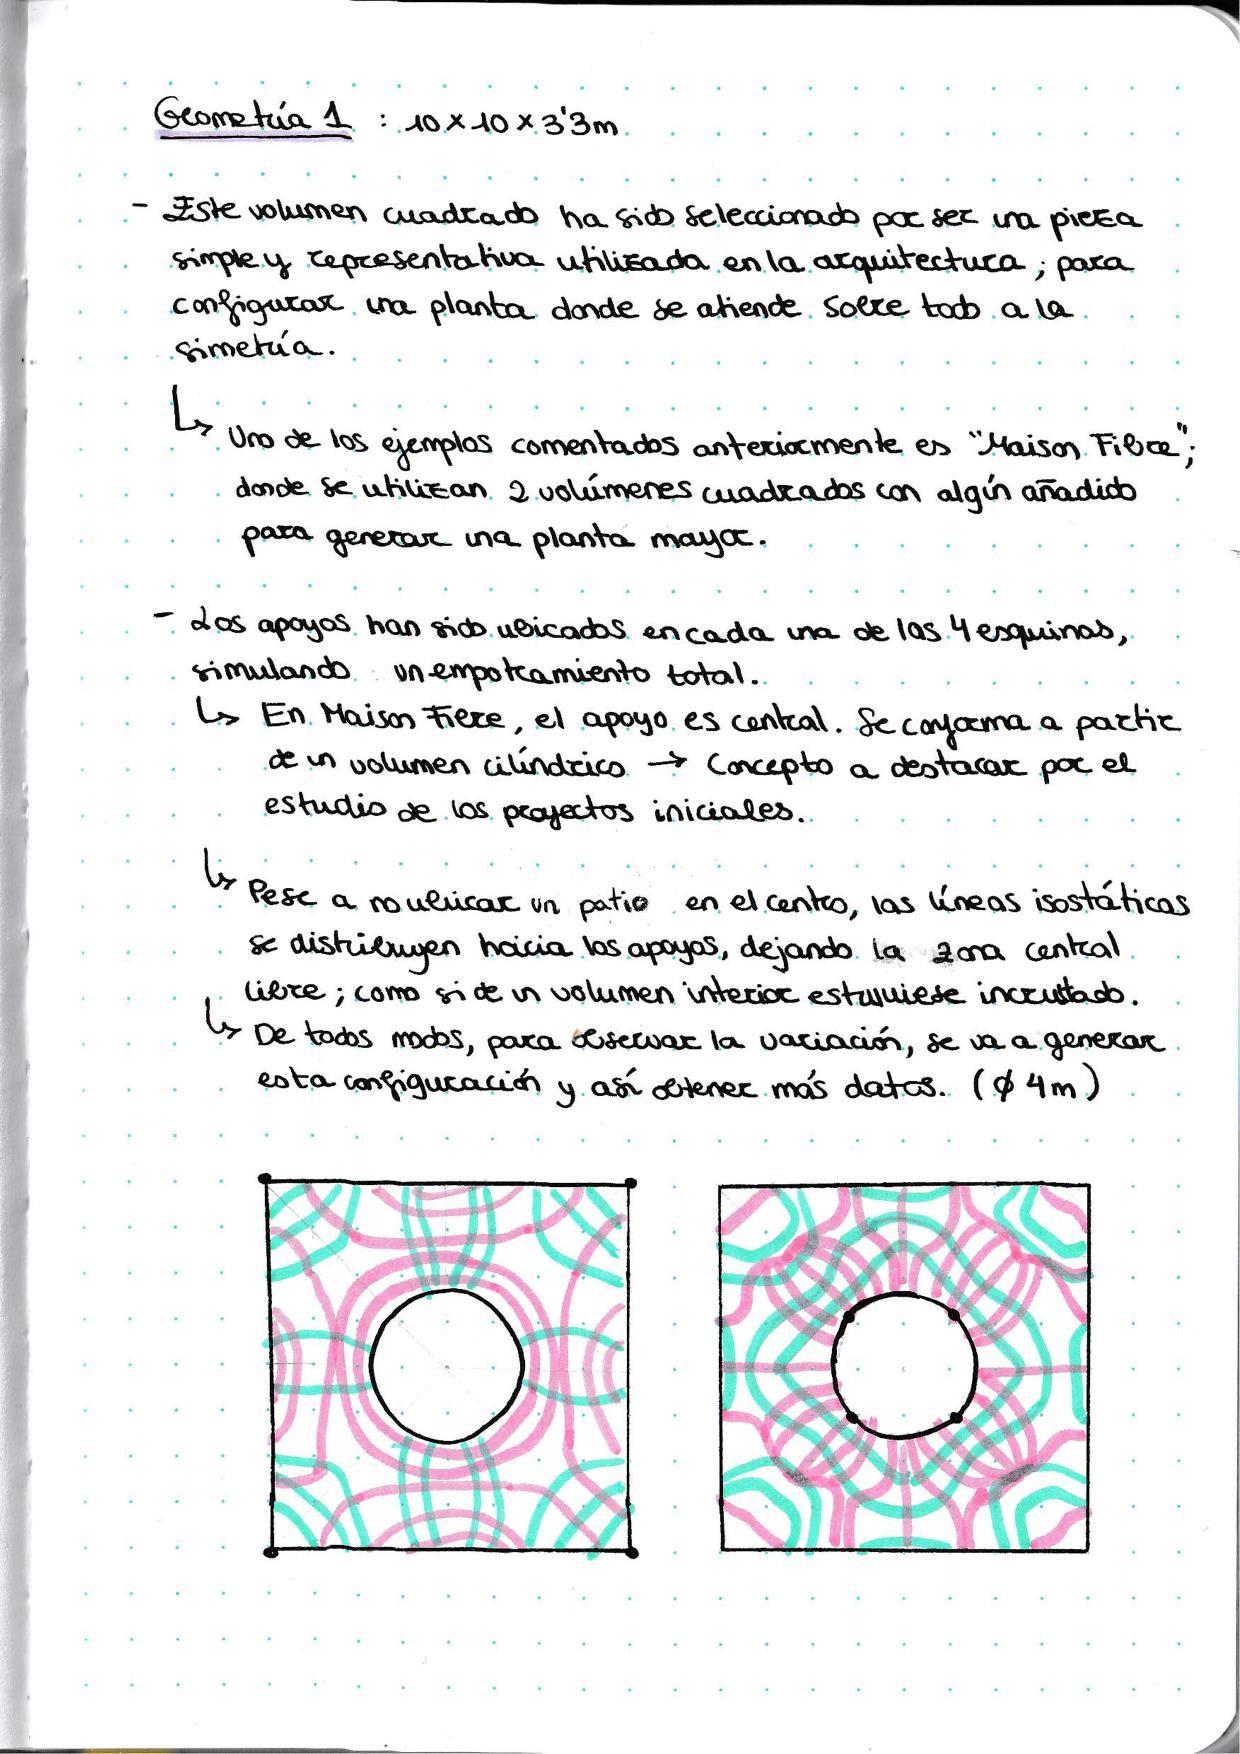 Geometría 1 : 10 x 10 x 3'3m
- Este volumen cuadrado ha sido seleccionado por ser una pieza
simple y representativa utilizada en la arquitectura; para
configurar una planta donde se atiende sobre todo a la
simetría.
↳ Uno de los ejemplos comentados anteriormente es "Maison Fibre";
donde se utilizan 2 volúmenes cuadrados con algún añadido
para generar una planta mayor.
- Los apoyos han sido ubicados en cada una de las 4 esquinas,
simulando un empotramiento total.
↳ En Maison Fibre, el apoyo es central. Se conforma a partir
de un volumen cilíndrico → Concepto a destacar por el
estudio de los proyectos iniciales.
↳ Pese a no ubicar un patio en el centro, las líneas isostáticas
se distribuyen hacia los apoyos, dejando la zona central
libre; como si de un volumen interior estuviese incrustado.
↳ De todos modos, para observar la variación, se va a generar
esta configuración y así obtener más datos. (ϕ 4m)